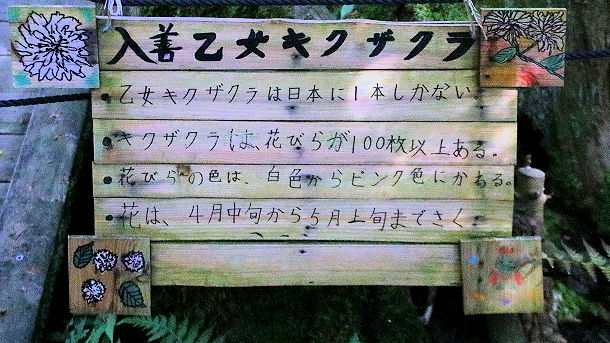 入善乙女キクザクラ
・乙女キクザクラは日本に1本しかない。
・キクザクラは、花びらが100枚以上ある。
・花びらの色は、白色からピンク色にかわる。
・花は、4月中旬から5月上旬までさく